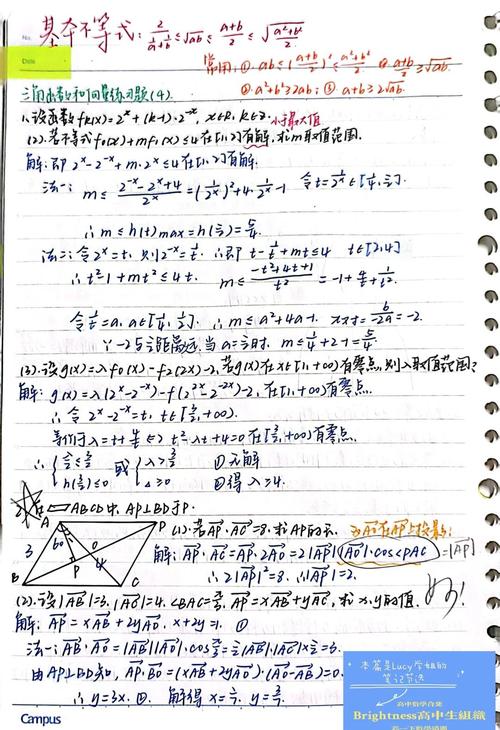 No.
Date
基本不等式: 2/(1/a+1/b) ≤ √ab ≤ (a+b)/2 ≤ √((a²+b²)/2)
常用: ① ab ≤ ((a+b)/2)² ≤ (a²+b²)/2 ② (a+b)/2 ≥ √ab
② a²+b² ≥ 2ab; ③ a+b ≥ 2√ab.
三角函数和向量练习题(4).
1.设函数fk(x)=2^x+(k-1)·2^-x, x∈R, k∈Z. 小于最大值
(2).若不等式f0(x)+mf1(x)≤4在[1,2]有解,求m取值范围.
解:即 2^x-2^-x+m·2^x≤4在[1,2]有解.
法一: m≤ (2^-x-2^x+4)/2^x =(1/2^x)²+4·1/2^x-1 令t=1/2^x∈[1/4,1/2].
∴m≤h(t)max=h(1/2)=5/4.
法二:令2^x=t,则2^-x=1/t. ∴即t-1/t+mt≤4 t∈[2,4]
∴t²-1+mt²≤4t. m≤ (-t²+4t+1)/t² =-1+4/t+1/t².
令1/t=a, a∈[1/4,1/2]. ∴m≤a²+4a-1. 对称 b/-2a=-2.
∵-2与1/2距最远,当a=1/2时. m≤1/4+2-1=5/4
(3).设g(x)=λf0(x)-f2(2x)-2,若g(x)在x∈[1,+∞)有零点,则λ取值范围?
解: g(x)=λ(2^x-2^-x)-(2^2x-2^-2x)-2,在[1,+∞)有零点.
∴令2^x-2^-x=t, t∈[3/2,+∞).
等价于λ=t+4/t ⇔ t²-λt+4=0在[3/2,+∞)有零点.
∴{λ/2≤3/2 h(3/2)≤0 或{λ>3/2 Δ≥0 ①无解 ②得λ≥4.
▱ABCD中,AP⊥BD于P.
A
D
(1).若AP·AC=8.求AP的长.
3
60
O
P
4
B
C
解: AP·AC=AP·2AO=2|AP||AO|·cos<PAC =|AP|
∴2|AP|²=8. ∴|AP|=2.
(2).设|AB|=3.|AC|=4.∠BAC=π/3, AP=xAB+yAC,求x.y的值.
解: AP=xAB+2yAO. x+2y=1. ①
法一:AB·AO=|AB||AO|·cosπ/3=1/2|AB|·|AC|×1/2=3.
由AP⊥BD知, AP·BO=(xAB+2yAO)·(AO-AB)=0.
∴y=3x.②. 解得x=1/7. y=3/7.
Campus
本篇是Lucy学姐的
笔记节选
高中数学合集
Brightness高中生组织